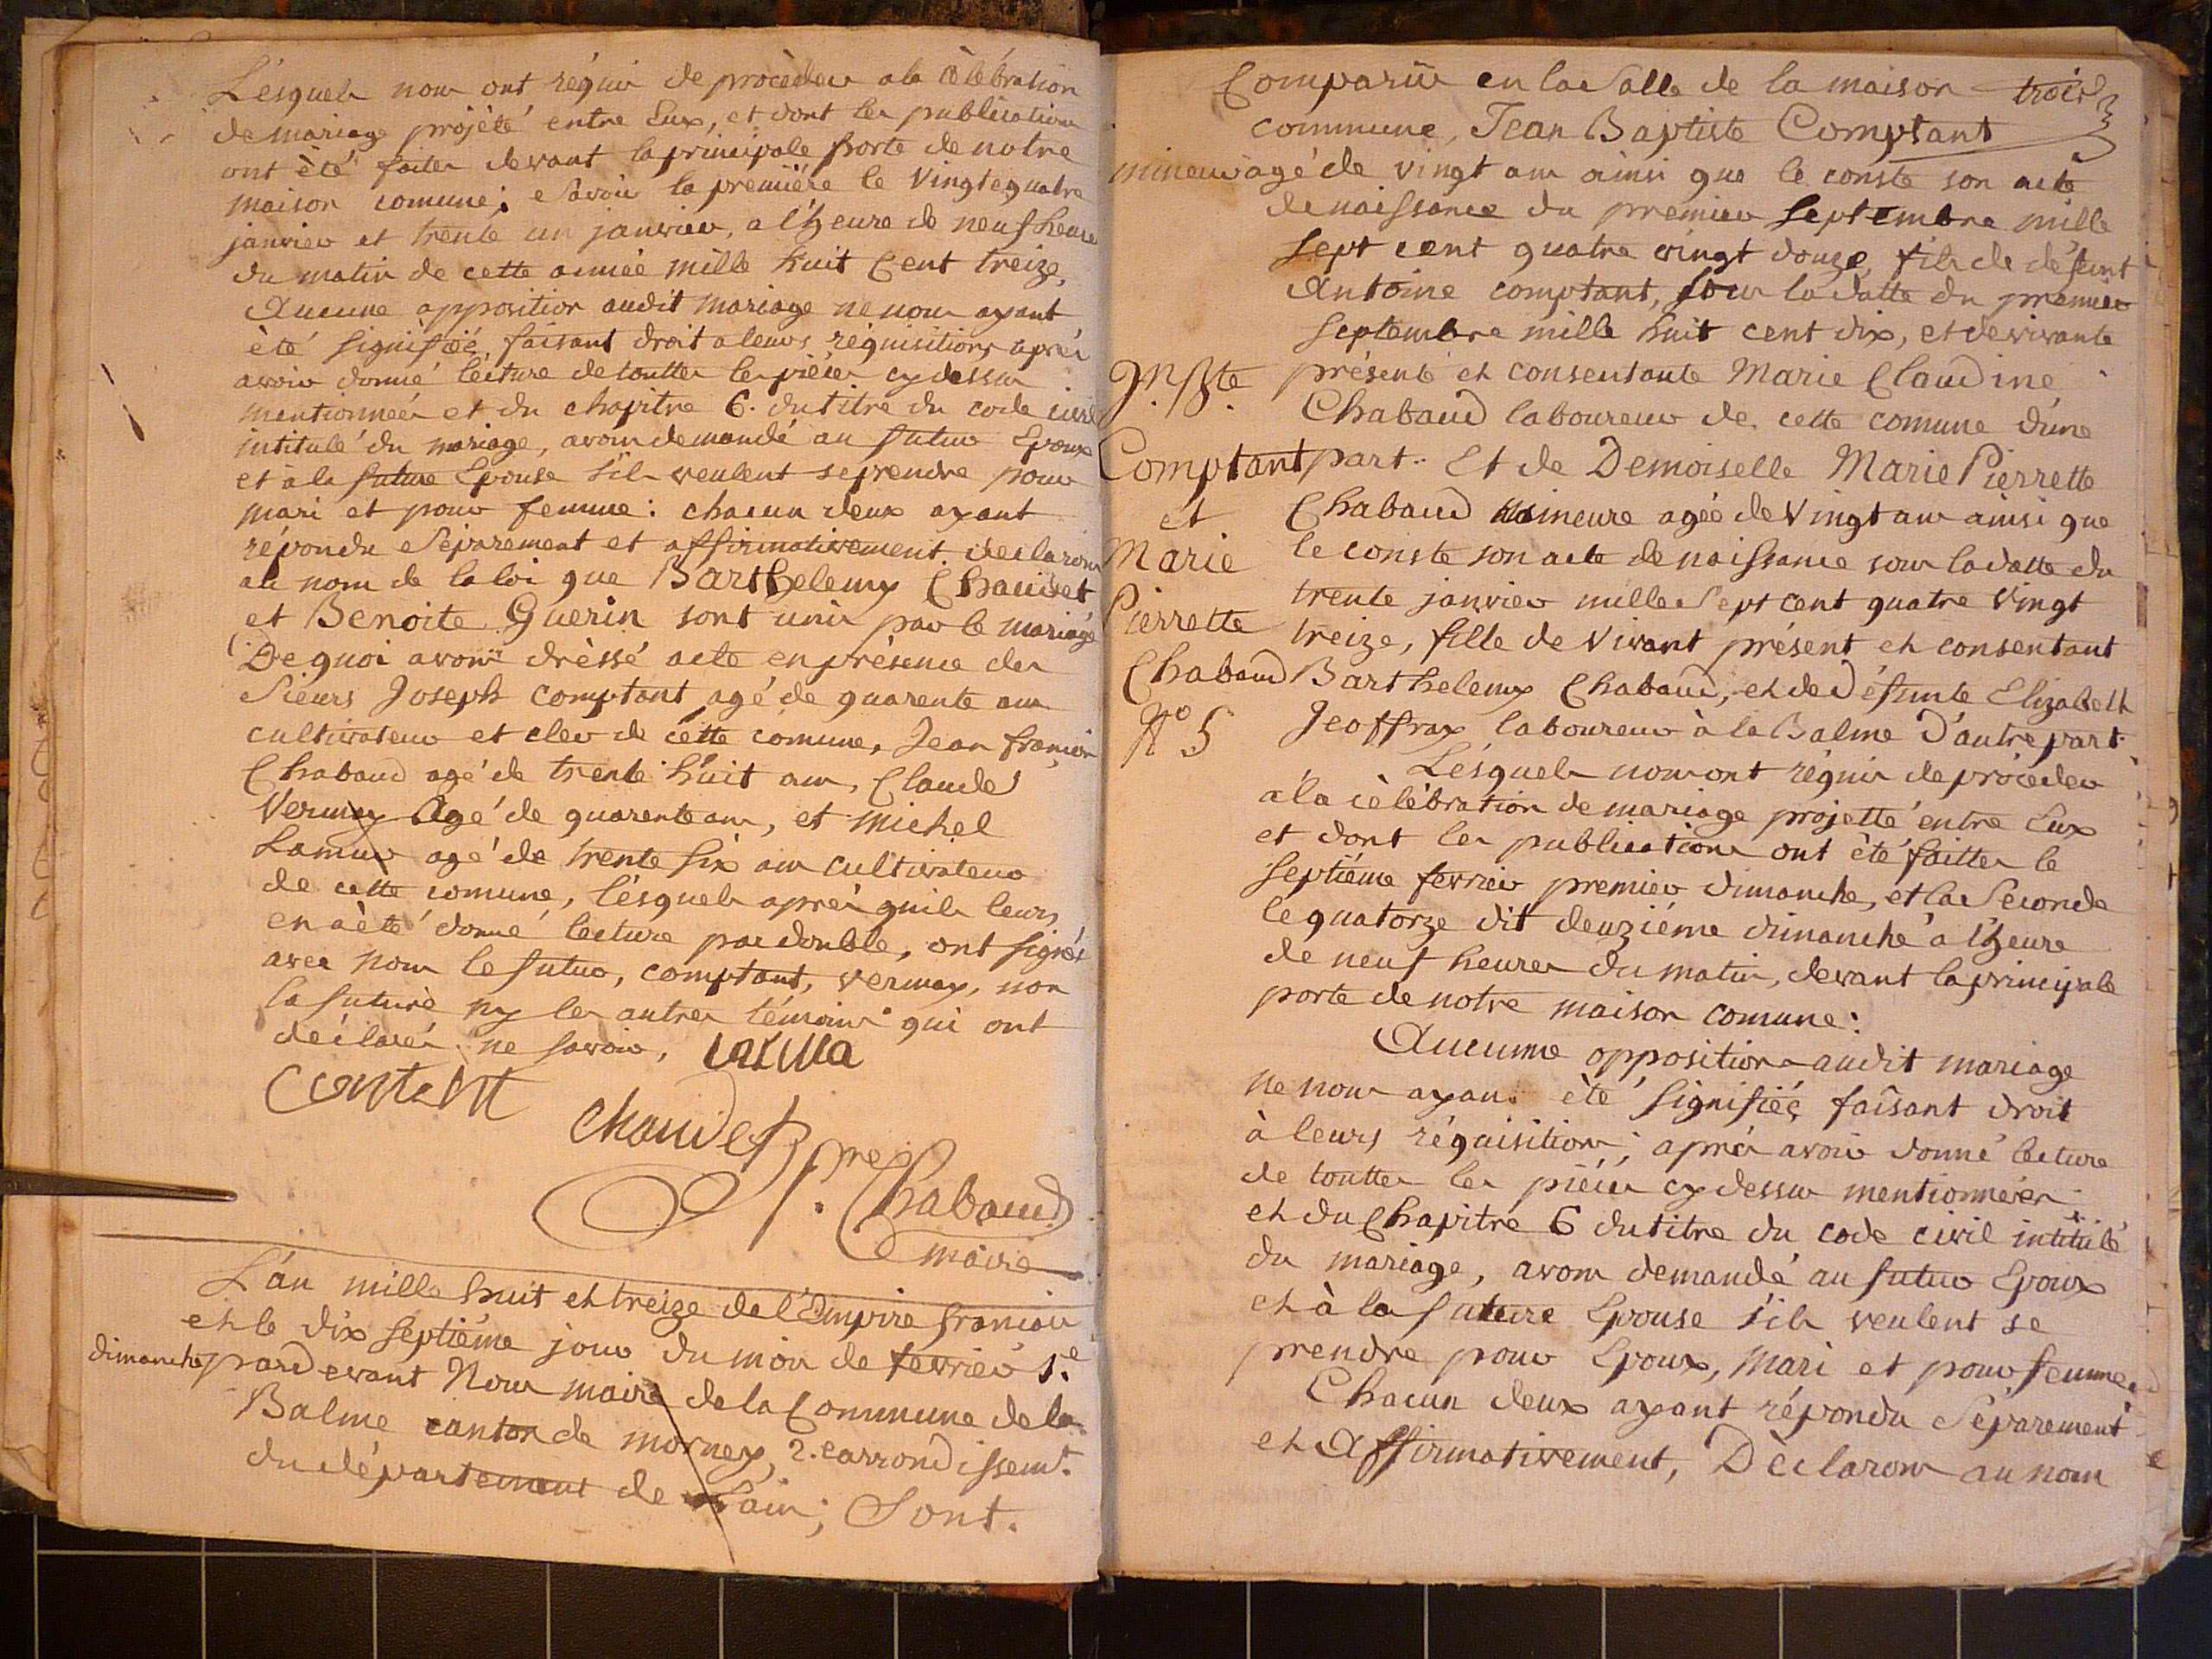 Lésquels nous ont réquis de procèder a la cèlébration
de mariage projèté entre Eux, et dont les publications
ont èté faites devant la principale porte de notre
maison comune; Savoir la premiére le Vingtequatre
janvier et trente un janvier, a l'heure de neuf heures
du matin de cette année mille huit Cent treize,
Aucune opposition audit mariage ne nous ayant
èté signifiéé faisant droit a leurs réquisitions aprés
avoir donné lécture de touttes les piéces cy dessus
mentionnéés et du chapitre 6. du titre du code civil
intitulé du mariage, avons demandé au futur Epoux
et à la future Epouse s'ils veulent se prendre pour
mari et pour femme: chacun deux ayant
répondu Séparement et affirmativement declarons
au nom de la loi que Barthelemy Chaudet
et Benoite Guerin sont unis par le mariage
De quoi avons drèssé acte en présence des
Sieurs Joseph Comptant agé de quarente ans
cultivateur et clev de cètte comune, Jean françois
Chabaud agé de trente huit ans, Claude
Vermay Agé de quarente ans, et michel
Lamur agé de trente six ans cultivateur
de cette comune, lésquels aprés quils leurs
en a èté donné lecture par double, ont signés
avec nous le futur, comptant, vermay, non
la future ny les autres témoins qui ont
déclarés ne savoir,
contant
chaudet
Pre Chabaud
maire
L'an mille huit et treize de l'Empire françois
et le dix septiéme jour du mois de fevrier 1.e
dimanche pardevant Nous maire de la Commune de la
Balme canton de mornay, 2. earrondissemt.
du département de Lain; Sont.
Comparus en la Salle de la maison trois
commune, Jean Baptiste Comptant
mineur agé de vingt ans ainsi que le conste son acte
de naissance du premier Septembre mille
sept cent quatre vingt douze fils de défunt
Antoine comptant, sous la datte du premier
Septembre mille huit cent dix, et de vivante
présente et consentante Marie Claudine
Chabaud laboureur de cette comune d'une
part. Et de Demoiselle Marie Pierrette
Chabaud mineure agéé de Vingt ans ainsi que
le conste son acte de naissance sous la datte du
trente janvier mille Sept cent quatre Vingt
treize, fille de Vivant présent et consentant
Barthelemy Chabaud, et de Défunte Elizabeth
Jeoffray laboureur à la Balme D'autre part.
J.n B.te
Comptant
et
Marie
Pierrette
Chabaud
N.o 5
Lésquels nous ont réquis de procéder
à la cèlébration de mariage projetté entre Eux
et dont les publications ont èté faittes le
septiéme fevrier premier dimanche, et la Seconde
le quatorze dit deuziéme dimanche a l'heure
de neuf heures du matin, devant la principale
porte de notre maison comune:
Aucunne opposition audit mariage
ne nous ayant èté signifiéé faisant droit
à leurs réquisitions; aprés avoir donné lecture
de touttes les piéces cy dessus mentionnéés
et du Chapitre 6 du titre du code civil intitulé
du mariage, avons demandé au futur Epoux
et à la future Epouse s'ils veulent se
prendre pour Epoux, mari et pour femme.
Chacun deux ayant répondu Séparement
et Affirmativement, Dèclarons au nom